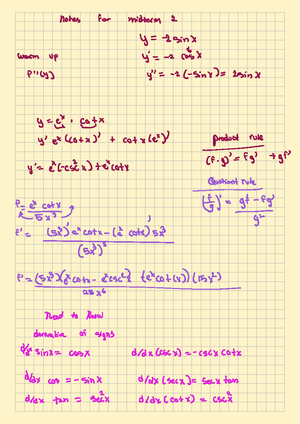 Notes for midterm 2
y = -2 sin x
warm up y' = -2 cos x
f''(y) y'' = -2 (-sin x) = 2 sin x
y = e^x · cot x
y' e^x (cot x)' + cot x (e^x)'
product rule
(f·g)' = fg' + gf'
y' = e^x (-csc^2 x) + e^x cot x
Quotient rule
(f/g)' = gf' - fg' / g^2
f = e^x cot x / 5x^3
f' = (5x^3)' e^x cot x - (e^x cot x)' 5x^3 / (5x^3)^2
f' = (5x^3)(e^x cot x - e^x csc^2 x) (e^x cot(x)) (15x^2) / 25x^6
Need to know
derivative of signs
d/dx sin x = cos x d/dx (csc x) = -csc x cot x
d/dx cos = -sin x d/dx (sec x) = sec x tan
d/dx tan = sec^2 x d/dx (cot x) = csc^2 x